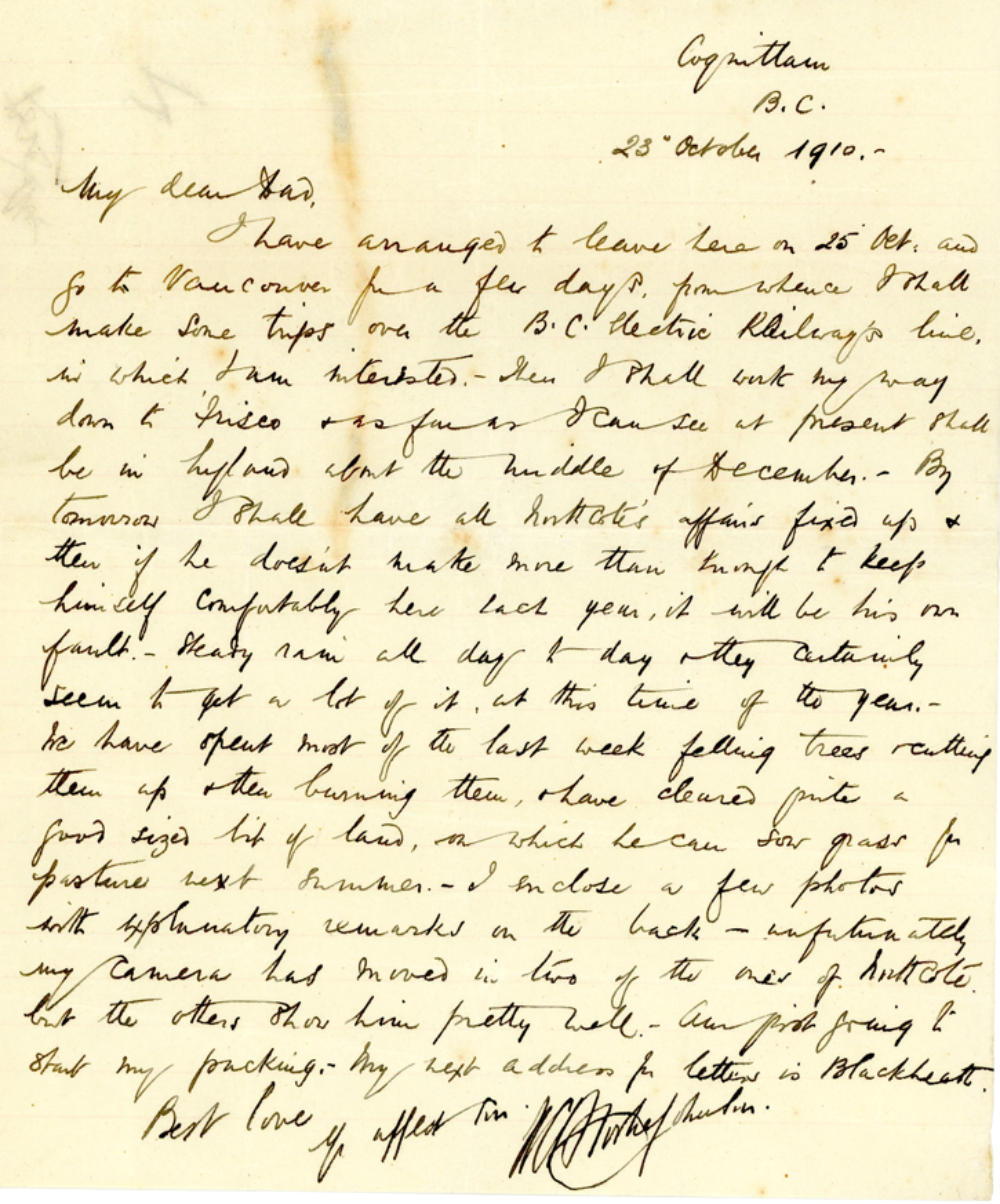 Coquitlam
B.C.
23" October 1910.-
My dear Dad,
I have arranged to leave here on 25 Oct. and
go to Vancouver for a few days, from whence I shall
make some trips over the B.C. Electric Railways line,
in which I am interested.- Then I shall work my way
down to 'Frisco & as far as I can see at present shall
be in England about the middle of December.- By
tomorrow I shall have all Northcote's affairs fixed up &
then if he doesn't make more than enough to keep
himself comfortably here each year, it will be his own
fault.- Steady rain all day to day & they certainly
seem to get a lot of it, at this time of the year.-
We have spent most of the last week felling trees & cutting
them up & then burning them, & have cleared quite a
good sized bit of land, on which he can sow grass for
pasture next summer.- I enclose a few photos
with explanatory remarks on the back - unfortunately
my camera has moved in two of the ones of Northcote
but the others show him pretty well.- Am just going to
start my packing.- My next address for letters is Blackheath.
Best love
yr affect son